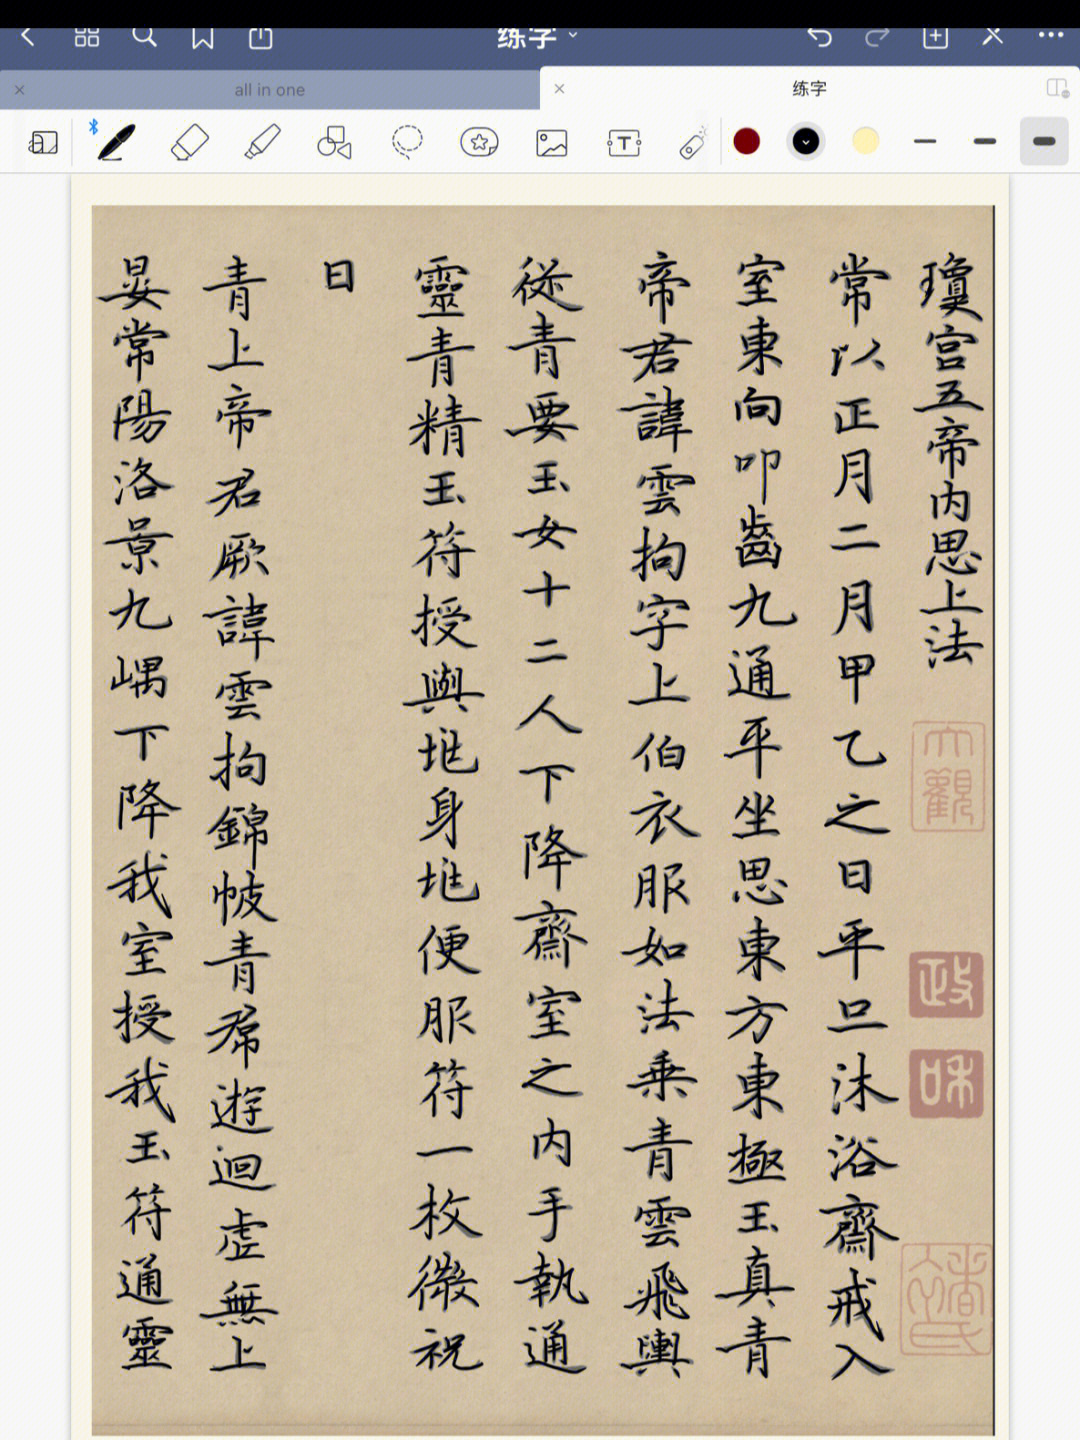 练字
all in one
练字
T
瓊宫五帝内思上法
常以正月二月甲乙之日平旦沐浴齋戒入
室東向叩齒九通平坐思東方東極玉真青
帝君諱雲拘字上伯衣服如法乘青雲飛輿
從青要玉女十二人下降齋室之内手執通
靈青精玉符授與地身地便服符一枚微祝
曰
青上帝君厥諱雲拘錦帔青帬遊迴虚無上
晏常陽洛景九嵎下降我室授我玉符通靈
大觀
政
和